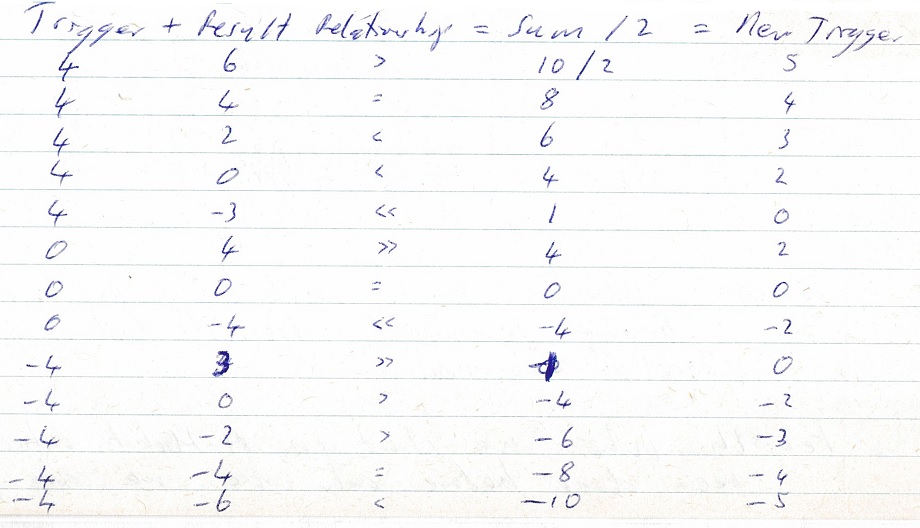 Trigger + Result relationship = Sum / 2 = New Trigger
4 6 > 10 / 2 5
4 4 = 8 4
4 2 < 6 3
4 0 < 4 2
4 -3 << 1 0
0 4 >> 4 2
0 0 = 0 0
0 -4 << -4 -2
-4 3 >> -1 0
-4 0 > -4 -2
-4 -2 > -6 -3
-4 -4 = -8 -4
-4 -6 < -10 -5